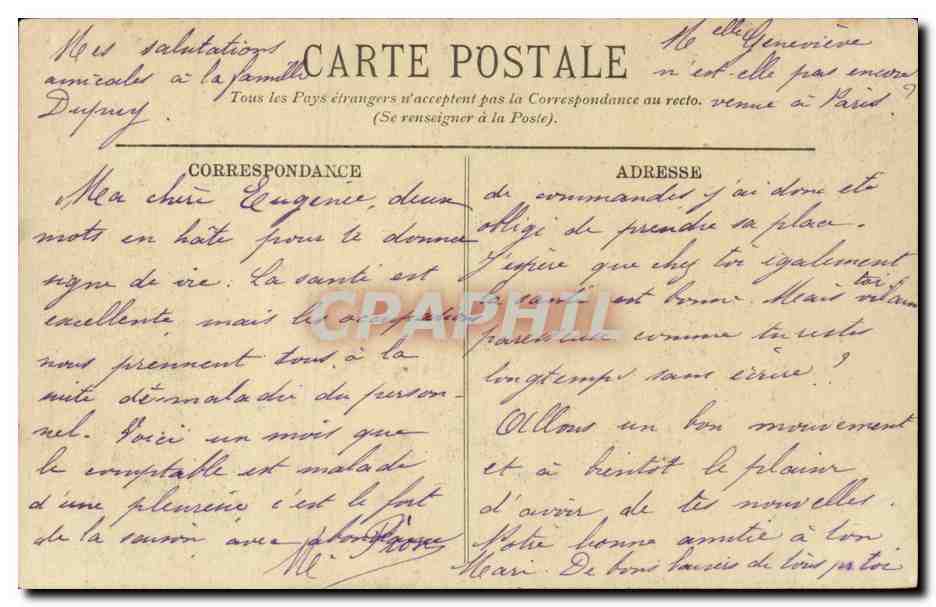 CARTE POSTALE
Tous les Pays étrangers n'acceptent pas la Correspondance au recto.
(Se renseigner à la Poste).
CORRESPONDANCE
Ma chère Eugénie, deux
mots en hâte pour te donner
signe de vie. La santé est
excellente mais les occupations
nous prennent tous, à la
suite de maladie du person-
nel. Voici un mois que
le comptable est malade
d'une pleurésie c'est le fort
de la saison avec
ADRESSE
de commandes j'ai donc été
obligé de prendre sa place.
J'espère que chez toi également
la santé est bonne. Mais toi vilaine
paresseuse comme tu restes
longtemps sans écrire ?
Allons un bon mouvement
et à bientôt le plaisir
d'avoir de tes nouvelles.
Notre bonne amitié à ton
Mari. De bons baisers de tous pr toi
Mes salutations
amicales à la famille
Dupuy.
Melle Geneviève
n'est-elle pas encore
venue à Paris ?
CPAPHIL